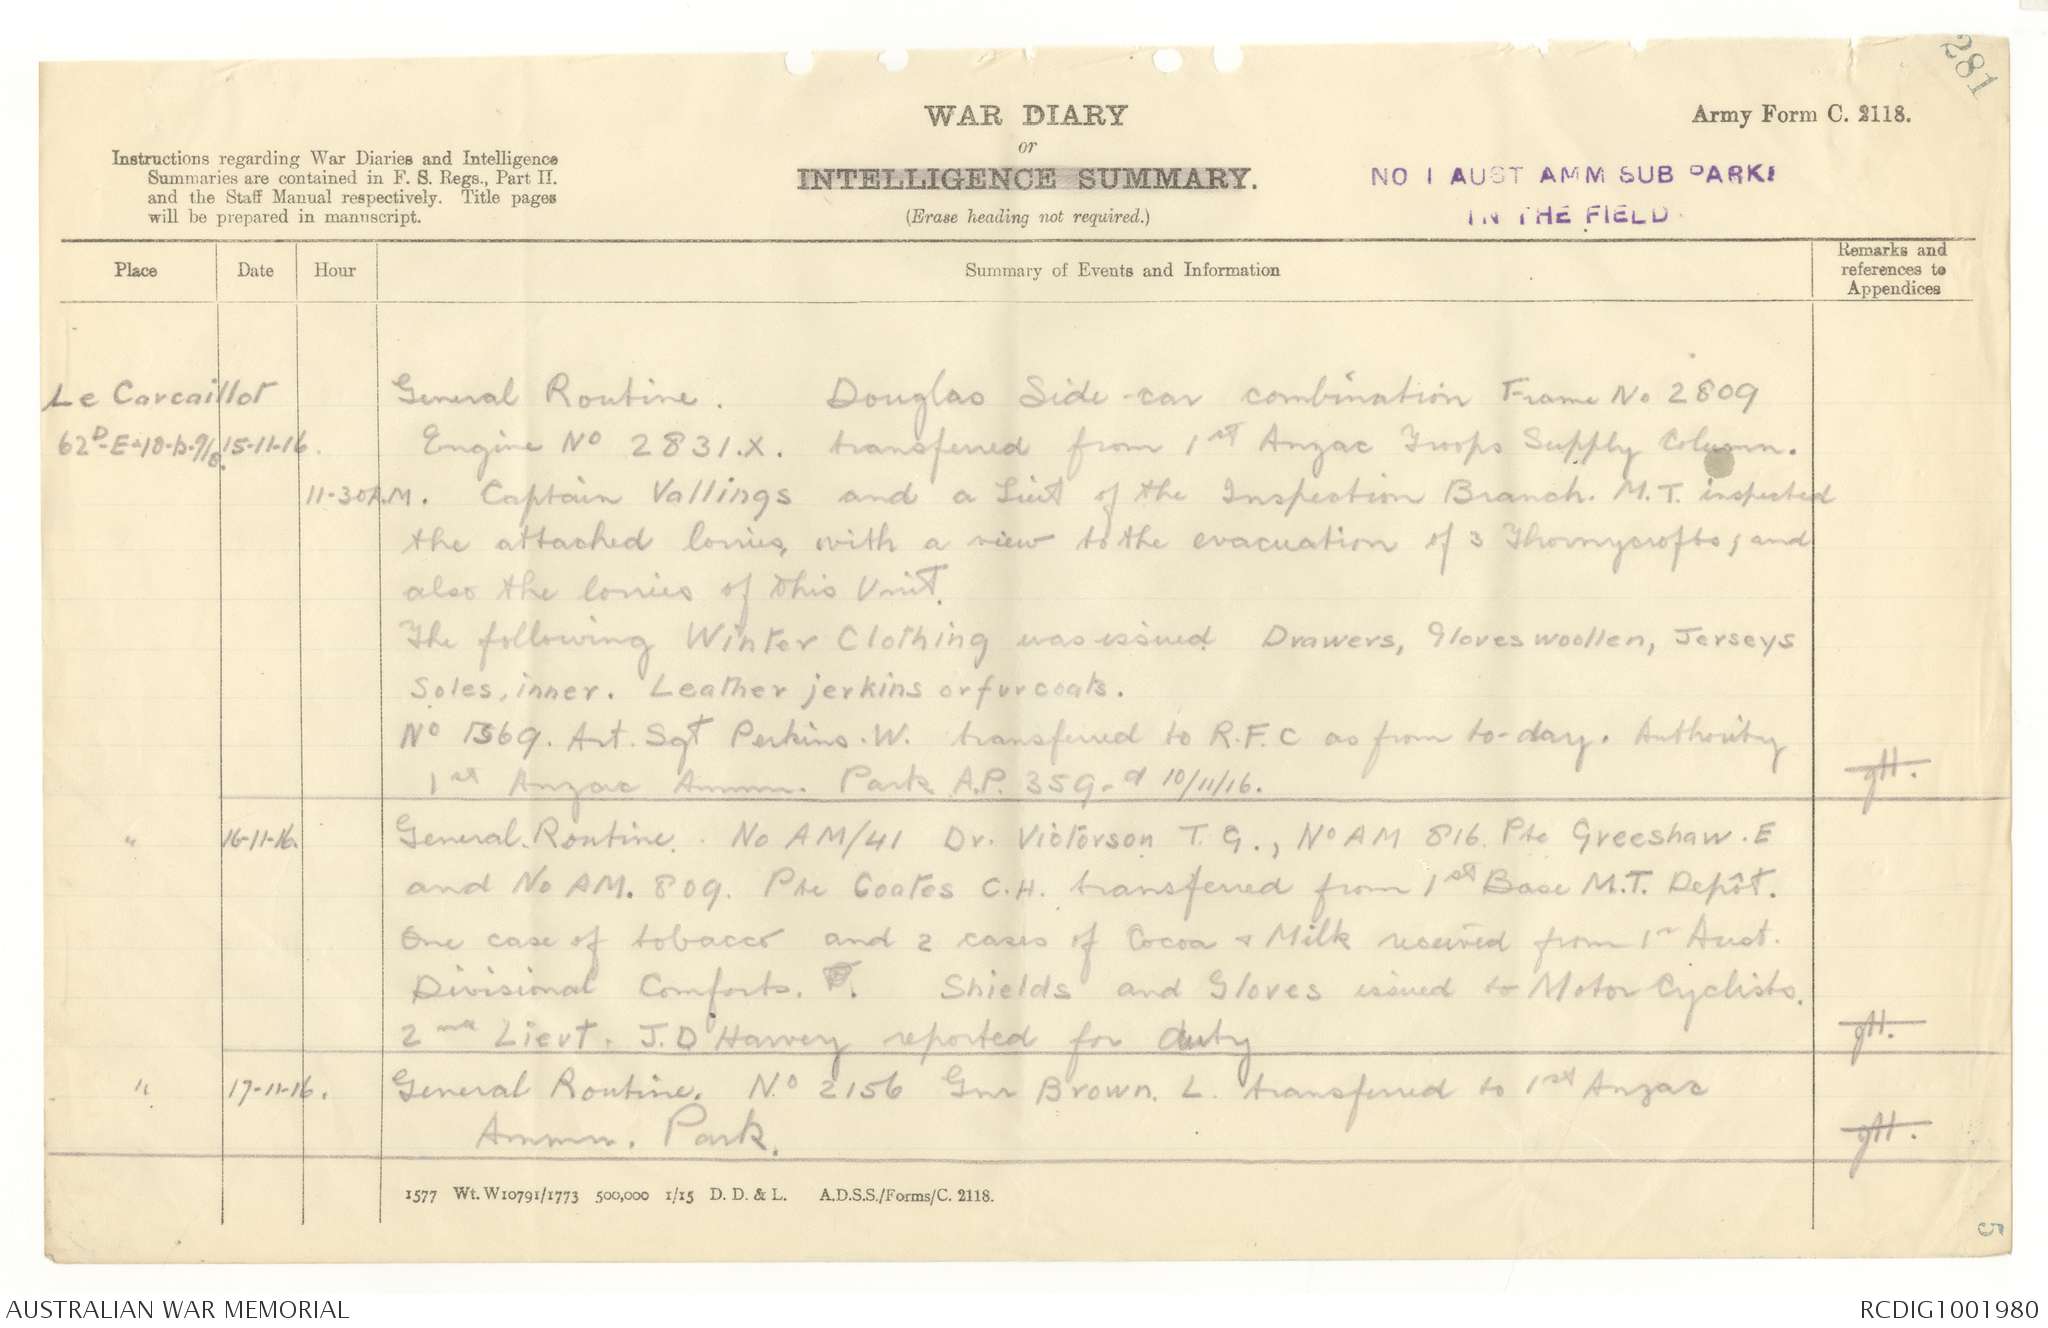 281
WAR DIARY
or
INTELLIGENCE SUMMARY.
(Erase heading not required.)
Army Form C. 2118.
Instructions regarding War Diaries and Intelligence
Summaries are contained in F. S. Regs., Part II.
and the Staff Manual respectively. Title pages
will be prepared in manuscript.
NO 1 AUST AMM SUB PARK
IN THE FIELD.
Place Date Hour Summary of Events and Information Remarks and
references to
Appendices
Le Carcaillot General Routine. Douglas Side-car combination Frame No 2809
15-11-16. Engine No 2831.X. transferred from 1st Anzac Troops Supply Column.
11-30A.M. Captain Vallings and a Lieut of the Inspection Branch. M.T. inspected
the attached lorries, with a view to the evacuation of 3 Thornycrofts, and
also the lorries of this Unit.
The following Winter Clothing was issued Drawers, Gloves woollen, Jerseys
Soles, inner. Leather jerkins or fur coats.
No Art. Sgt Perkins. W. transferred to R.F.C as from to-day. Authority
1st Anzac Ammn. Park A.P. 359- d 10/11/16.
" 16-11-16. General Routine. No AM/41 Dr. Victorson T. G., No AM 816. Pte Greeshaw. E
and No AM. 809. Pte Coates C.H. transferred from 1st Base M.T. Depôt.
One case of tobacco and 2 cases of Cocoa & Milk received from 1st Aust.
Divisional Comforts. Shields and Gloves issued to Motor Cyclists.
2nd Lieut. J.D Harvey reported for duty
" 17-11-16. General Routine. No 2156 Gnr Brown. L. transferred to 1st Anzac
Ammn. Park.
1577 Wt. W10791/1773 500,000 1/15 D. D. & L. A.D.S.S./Forms/C. 2118.
5
AUSTRALIAN WAR MEMORIAL
RCDIG1001980